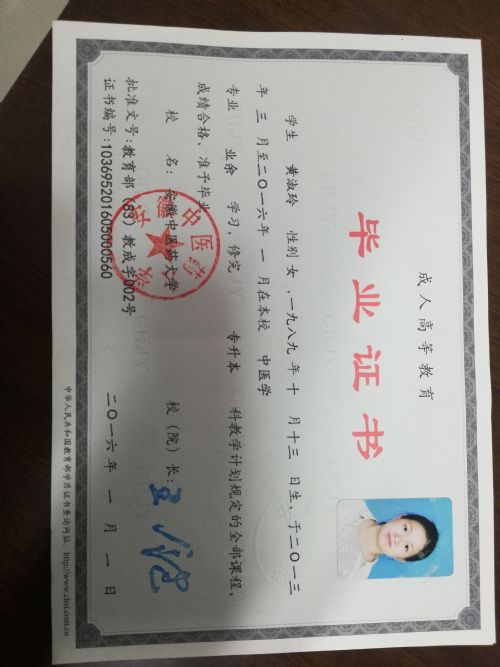 成人高等教育
毕业证书
学生 黄淑玲 性别 女,一九八九年 十 月十三 日生,于二〇一三
年 三 月至二〇一六年 一 月在本校 中医学
专业 业余 学习,修完 专升本 科教学计划规定的全部课程,
成绩合格,准予毕业
校 名:安徽中医药大学 校(院)长:
批准文号:教育部(83)教成字002号
证书编号:103695201605000560 二〇一六年 一 月 一 日
中华人民共和国教育部学历证书查询网址:http://www.chsi.com.cn